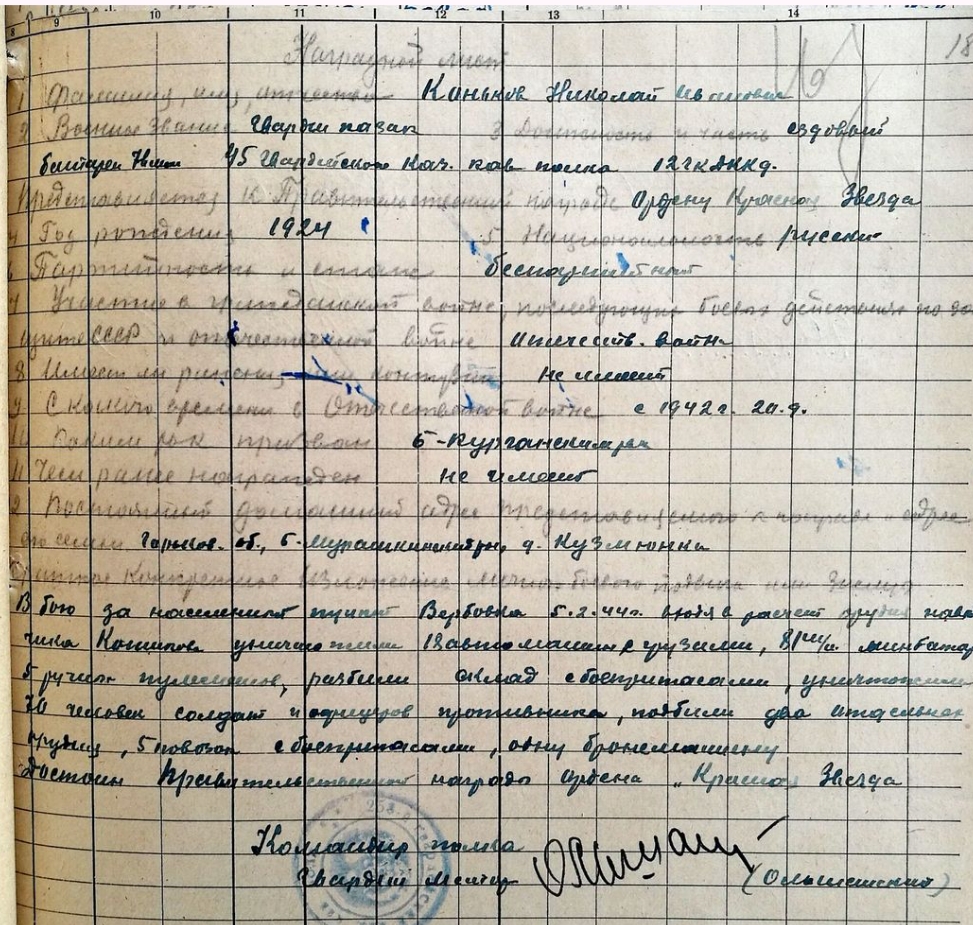 9 10 11 12 13 14
18
Наградной лист
1 Фамилия, имя, отчество Каньков Николай Иванович
2 Военное звание Гвардии казак 3 Должность и часть ездовый
батареи 45 Гвардейского Каз. кав полка 12 гкДККД.
Представляется к Правительственной награде Ордену Красная Звезда
4 Год рождения 1924 5 Национальность русский
6 Партийность и стаж беспартийный
7 Участие в гражданской войне, последующих боевых действиях по за
щите СССР и отечественной войне отечеств. война
8 Имеет ли ранения или контузии не имеет
9 С какого времени в Отечественной войне с 1942г.
10 Каким рвк призван Б-Курганским рвк
11 Чем ранее награжден не имеет
Постоянный домашний адрес представляемого к награде и адрес
его семьи Горьков. об., Б-Мурашкинский рн, д.
Краткое конкретное изложение личного боевого подвига или заслуг
В бою за населенный пункт Вербовка 5.2.44г. входя в расчет орудия наво
чика уничтожили автомашин с грузами, 81 м/м минбатар
5 ручных пулеметов, разбили склад с боеприпасами, уничтожили
70 человек солдат и офицеров противника, подбили два
орудия, 5 повозок с боеприпасами, одну бронемашину
Достоин Правительственной награды ордена „Красная Звезда
Командир полка
Гвардии Майор (Ольшанский)